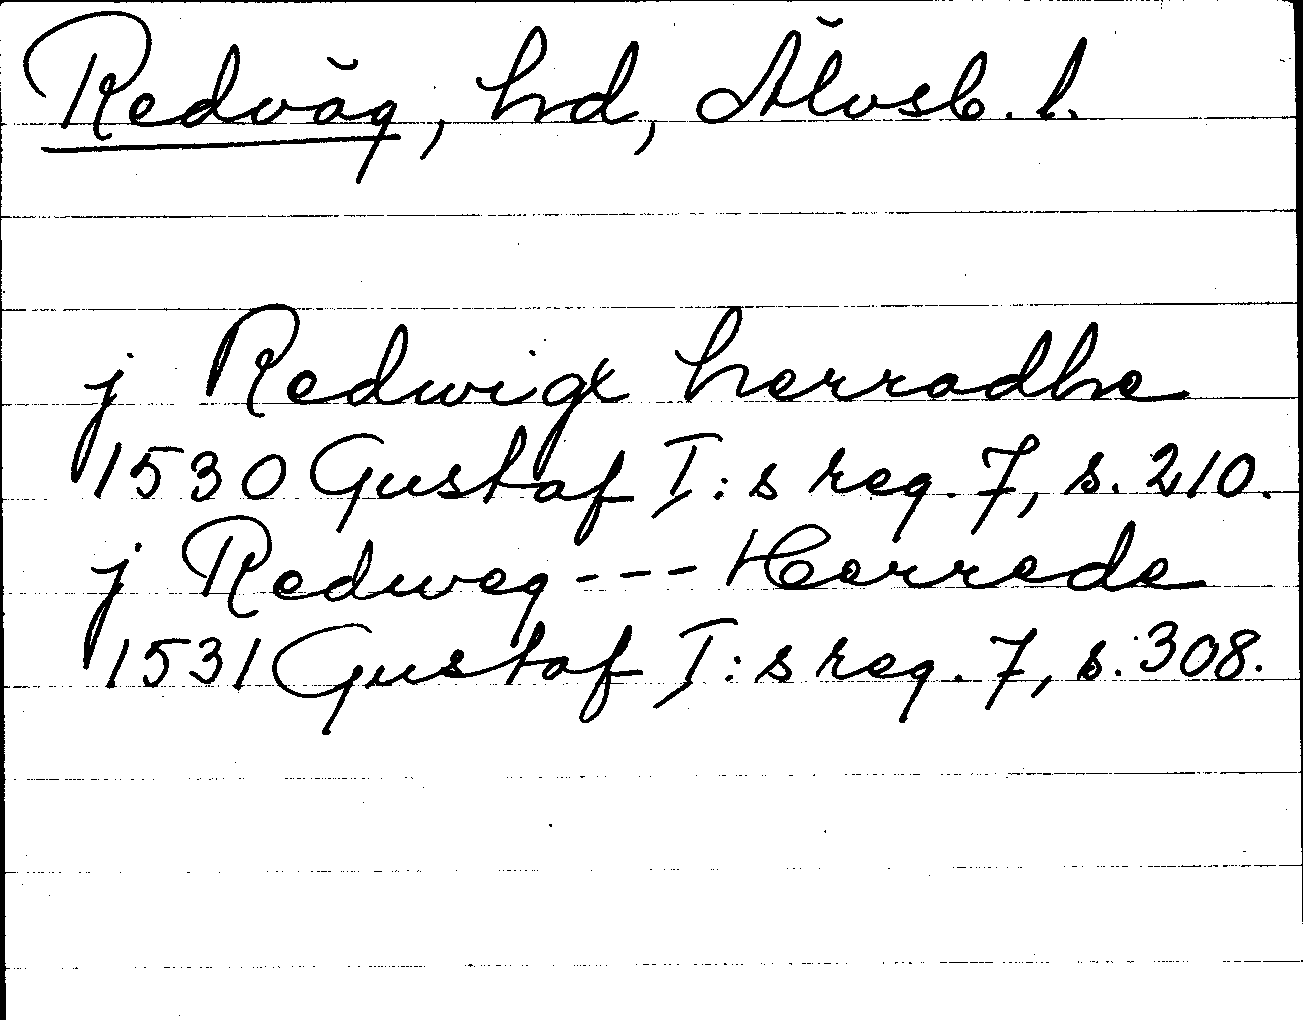 Redväg, hd, Älvsb. l.
j Redwigx herradhe
1530 Gustaf I:s reg. 7, s. 210.
j Redweg --- Herrede
1531 Gustaf I:s reg. 7, s. 308.